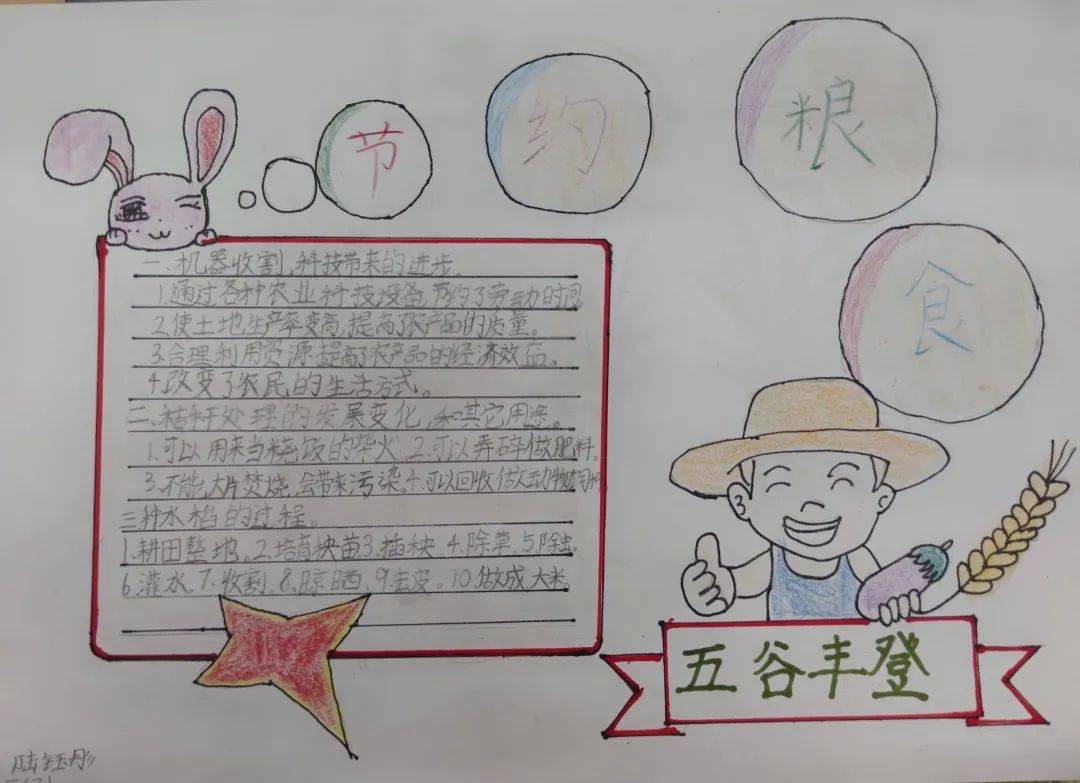 节约粮食
一.机器收割,科技带来的进步.
1.通过各种农业科技设备,节约了劳动时间
2.使土地生产率变高,提高了农产品的质量。
3.合理利用资源,提高了农产品的经济效益。
4.改变了农民的生活方式。
二.秸秆处理的发展变化,和其它用途。
1.可以用来当烧饭的柴火.2.可以弄碎做肥料.
3.不能大片焚烧,会带来污染。4.可以回收做动物饲料
三种水稻的过程。
1.耕田整地。2.培育秧苗3.插秧.4.除草.5.除虫。
6.灌水.7.收割.8.晾晒.9.去皮。10.做成大米.
五谷丰登
陆钰彤